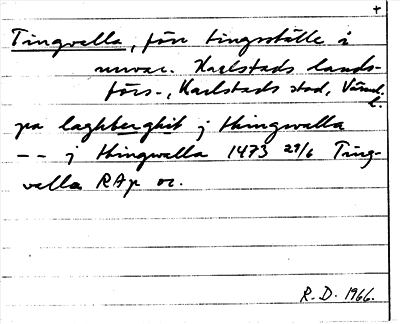 +
Tingvalla, förr tingsställe i
nuvar. Karlstads lands-
förs., Karlstads stad, Värml.
l.
pa laghberghit j thingwalla
-- j thingwalla 1473 29/6 Ting-
valla RAp or.
R.D. 1966.